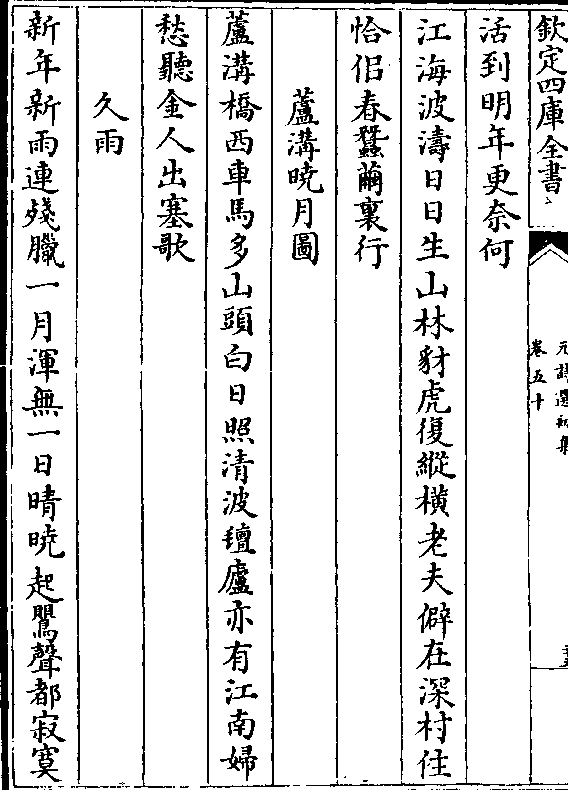 欽定四庫全書
元詩選初集
卷五十
活到明年更奈何
江海波濤日日生山林豺虎復縱橫老夫僻在深村住
恰侣春蠶繭裏行
蘆溝曉月圖
蘆溝橋西車馬多山頭白日照清波氊廬亦有江南婦
愁聽金人出塞歌
久雨
新年新雨連殘臘一月渾無一日晴曉起鶯聲都寂寞